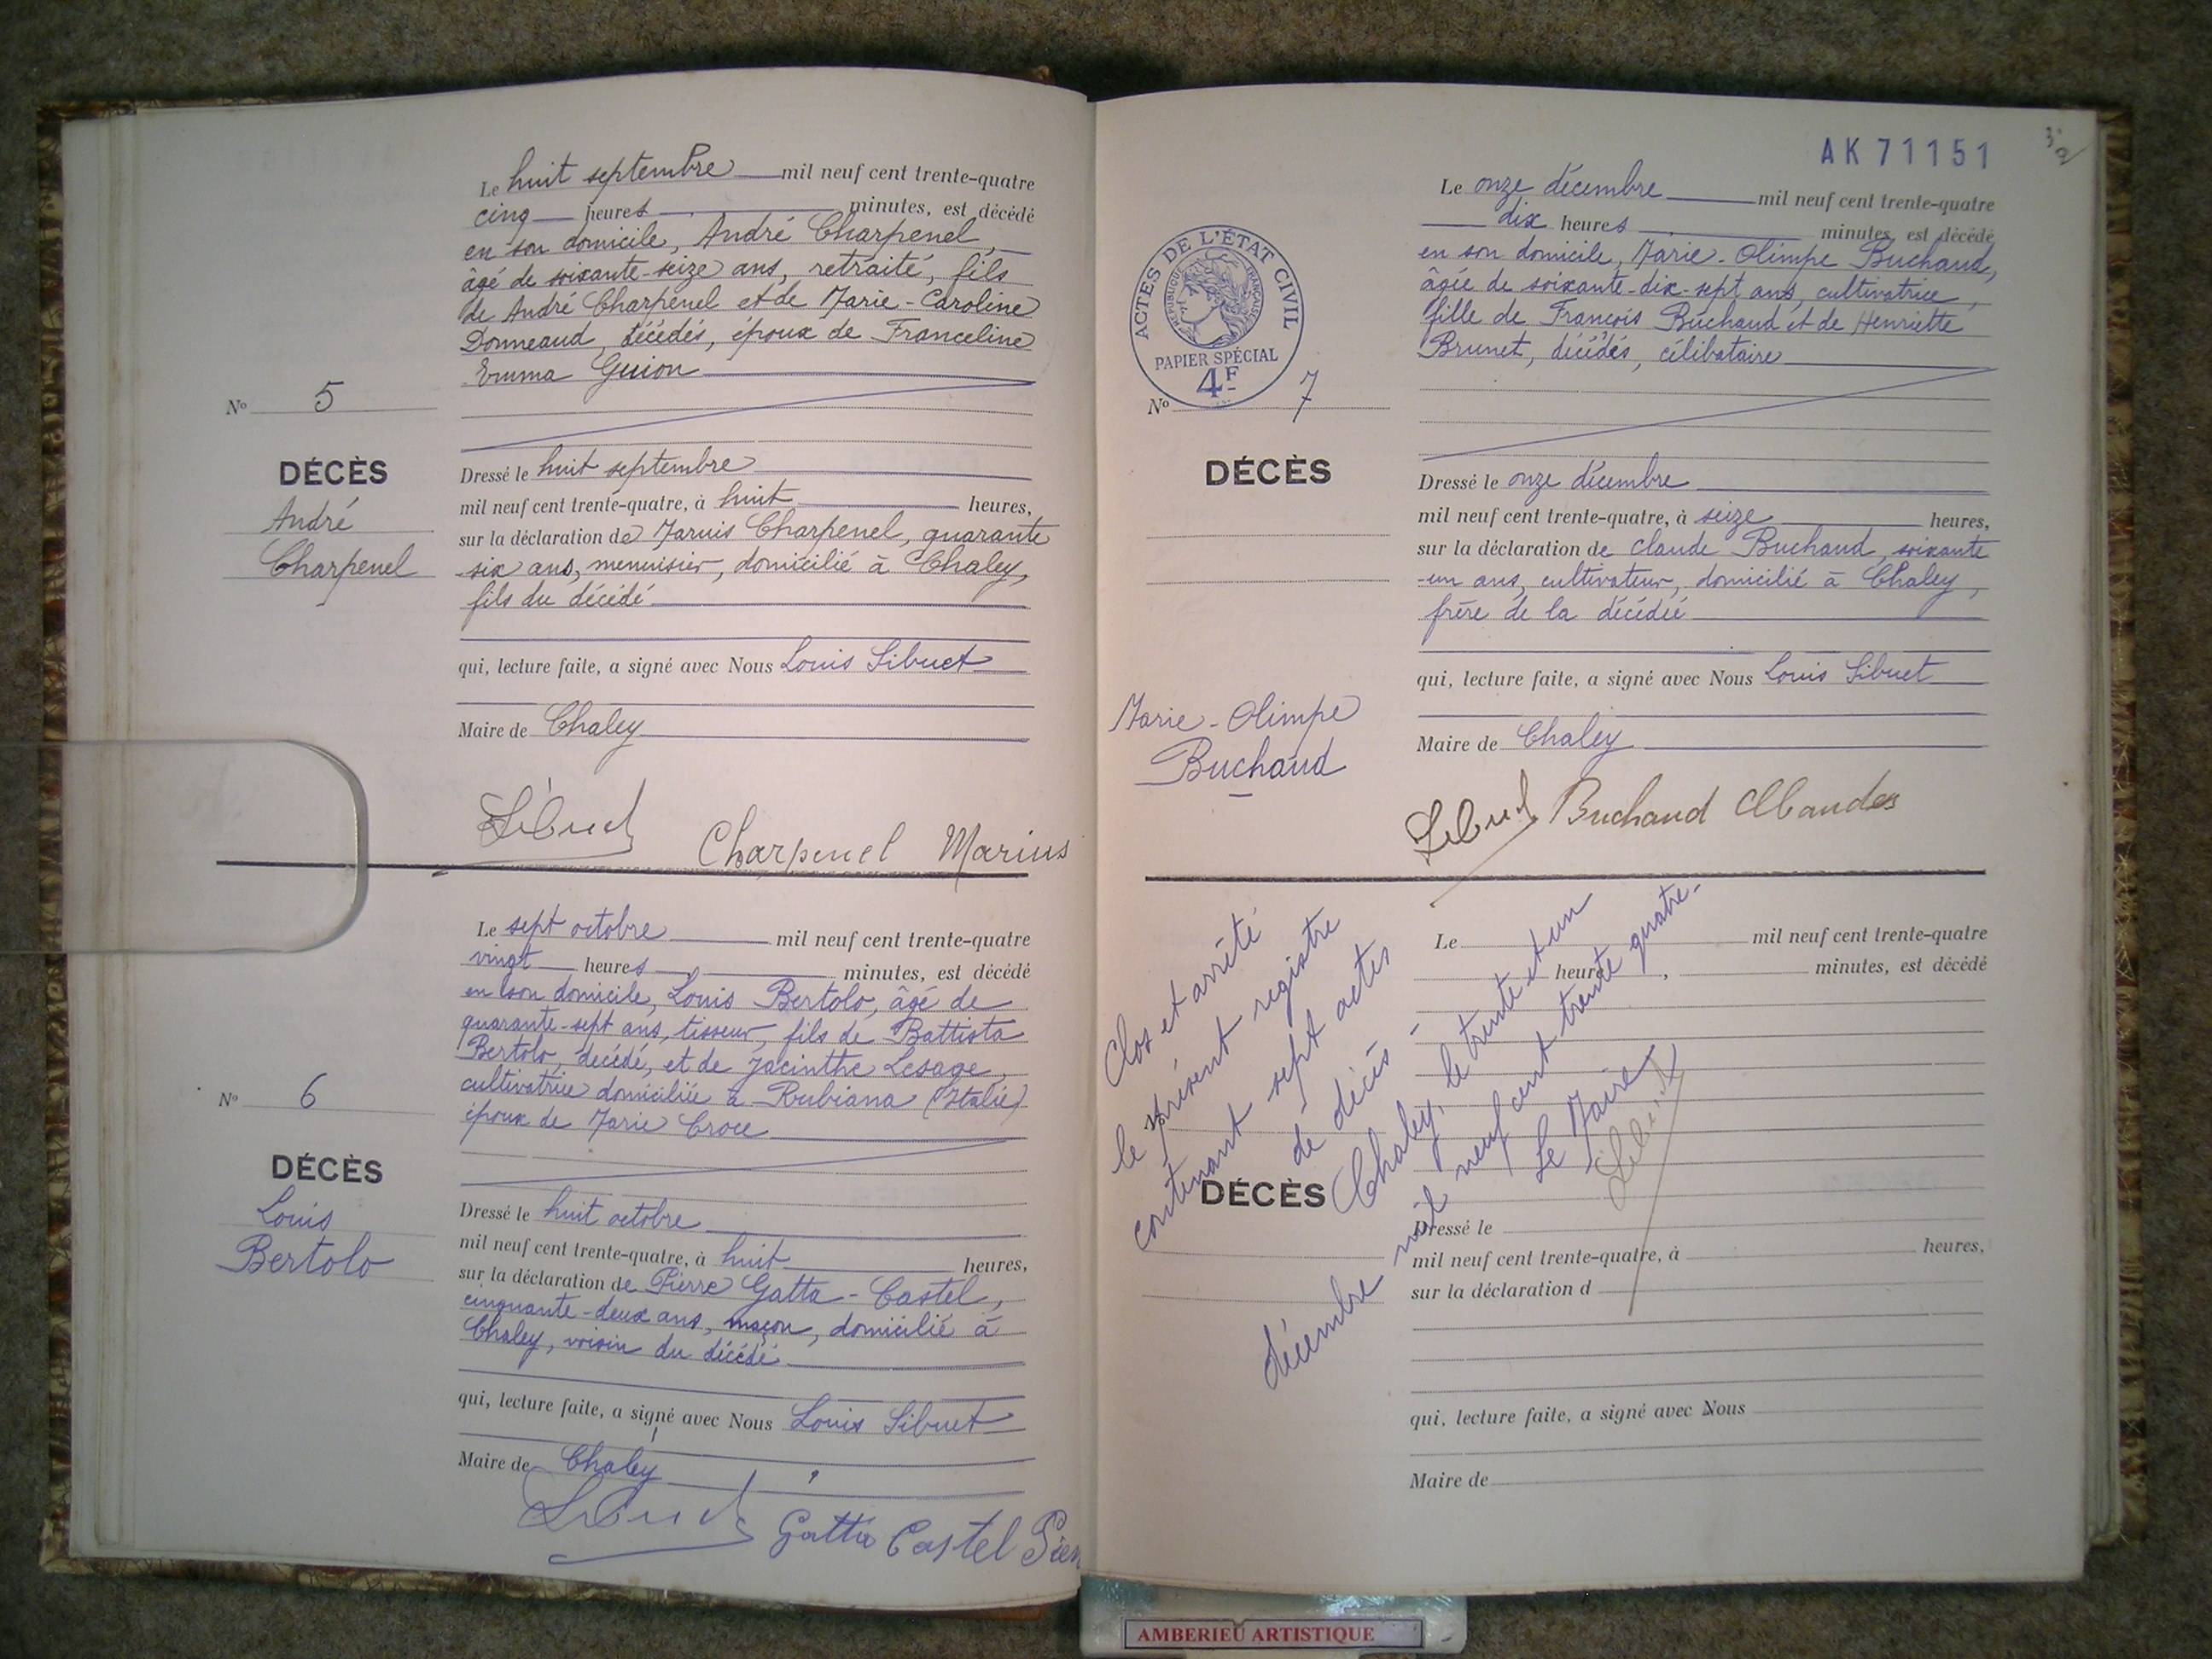 Le huit septembre mil neuf cent trente-quatre
cinq heures minutes, est décédé
en son domicile, André Charpenel,
âgé de soixante-seize ans, retraité, fils
de André Charpenel et de Marie-Caroline
Donneaud, décédés, époux de Franceline
Emma Guion
N° 5
DÉCÈS
André
Charpenel
Dressé le huit septembre
mil neuf cent trente-quatre, à huit heures,
sur la déclaration de Marius Charpenel, quarante
six ans, menuisier, domicilié à Chaley,
fils du décédé
qui, lecture faite, a signé avec Nous Louis Sibuet
Maire de Chaley
Sibuet Charpenel Marius
Le sept octobre mil neuf cent trente-quatre
vingt heures minutes, est décédé
en son domicile, Louis Bertolo, âgé de
quarante-sept ans, tisseur, fils de Battista
Bertolo, décédé, et de Jacinthe Lesage,
cultivatrice domiciliée à Rubiana (Italie)
époux de Marie Croce
N° 6
DÉCÈS
Louis
Bertolo
Dressé le huit octobre
mil neuf cent trente-quatre, à huit heures,
sur la déclaration de Pierre Gatta-Castel,
cinquante-deux ans, maçon, domicilié à
Chaley, voisin du décédé
qui, lecture faite, a signé avec Nous Louis Sibuet
Maire de Chaley
Sibuet Gatta Castel Pier
AK 71151
ACTES DE L'ÉTAT CIVIL
RÉPUBLIQUE FRANÇAISE
PAPIER SPÉCIAL
4F
Le onze décembre mil neuf cent trente-quatre
dix heures minutes, est décédé
en son domicile, Marie-Olimpe Buchaud,
âgée de soixante-dix-sept ans, cultivatrice,
fille de François Buchaud et de Henriette
Brunet, décédés, célibataire
N° 7
DÉCÈS
Marie-Olimpe
Buchaud
Dressé le onze décembre
mil neuf cent trente-quatre, à seize heures,
sur la déclaration de Claude Buchaud, soixante
-un ans, cultivateur, domicilié à Chaley,
frère de la décédée
qui, lecture faite, a signé avec Nous Louis Sibuet
Maire de Chaley
Sibuet Buchaud
Clos et arrêté
le présent registre
contenant sept actes
de décès -
Chaley, le trente et un
décembre mil neuf cent trente quatre-
Le Maire
Sibuet
Le mil neuf cent trente-quatre
heure , minutes, est décédé
DÉCÈS
Dressé le
mil neuf cent trente-quatre, à heures,
sur la déclaration d
qui, lecture faite, a signé avec Nous
Maire de
AMBERIEU ARTISTIQUE